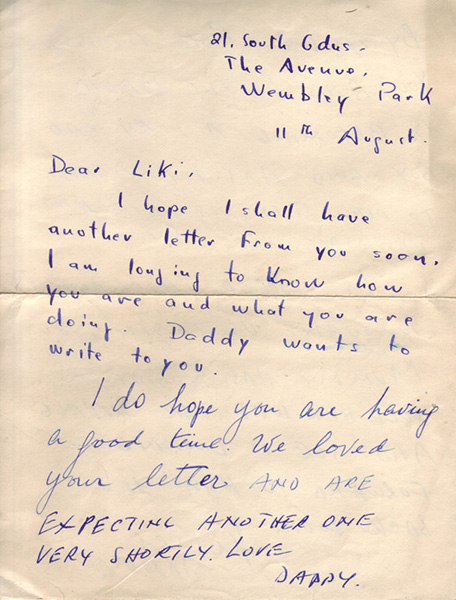 21, South Gdns.
The Avenue,
Wembley Park
11th August.
Dear Liki,
I hope I shall have
another letter from you soon.
I am longing to know how
you are and what you are
doing. Daddy wants to
write to you.
I do hope you are having
a good time. We loved
your letter AND ARE
EXPECTING ANOTHER ONE
VERY SHORTLY. LOVE
DADDY.